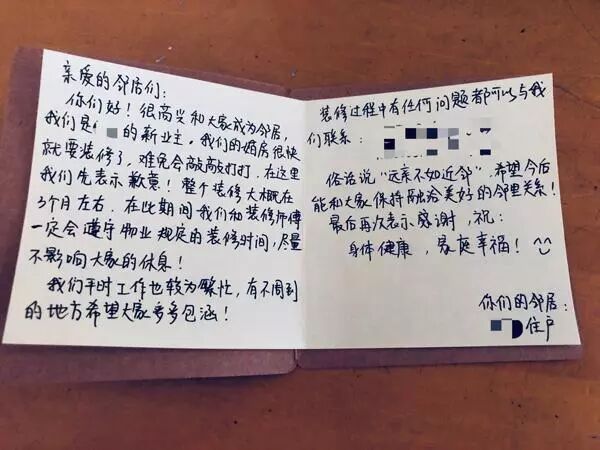 亲爱的邻居们：
你们好！很高兴和大家成为邻居，
我们是 的新业主，我们的婚房很快
就要装修了，难免会敲敲打打，在这里
我们先表示歉意！整个装修大概在
3个月左右，在此期间我们和装修师傅
一定会遵守物业规定的装修时间，尽量
不影响大家的休息！
我们平时工作也较为繁忙，有不周到
的地方希望大家多多包涵！
装修过程中有任何问题都可以与我
们联系：
俗话说“远亲不如近邻”，希望今后
能和大家保持融洽美好的邻里关系！
最后再次表示感谢，祝：
身体健康，家庭幸福！
你们的邻居：
住户